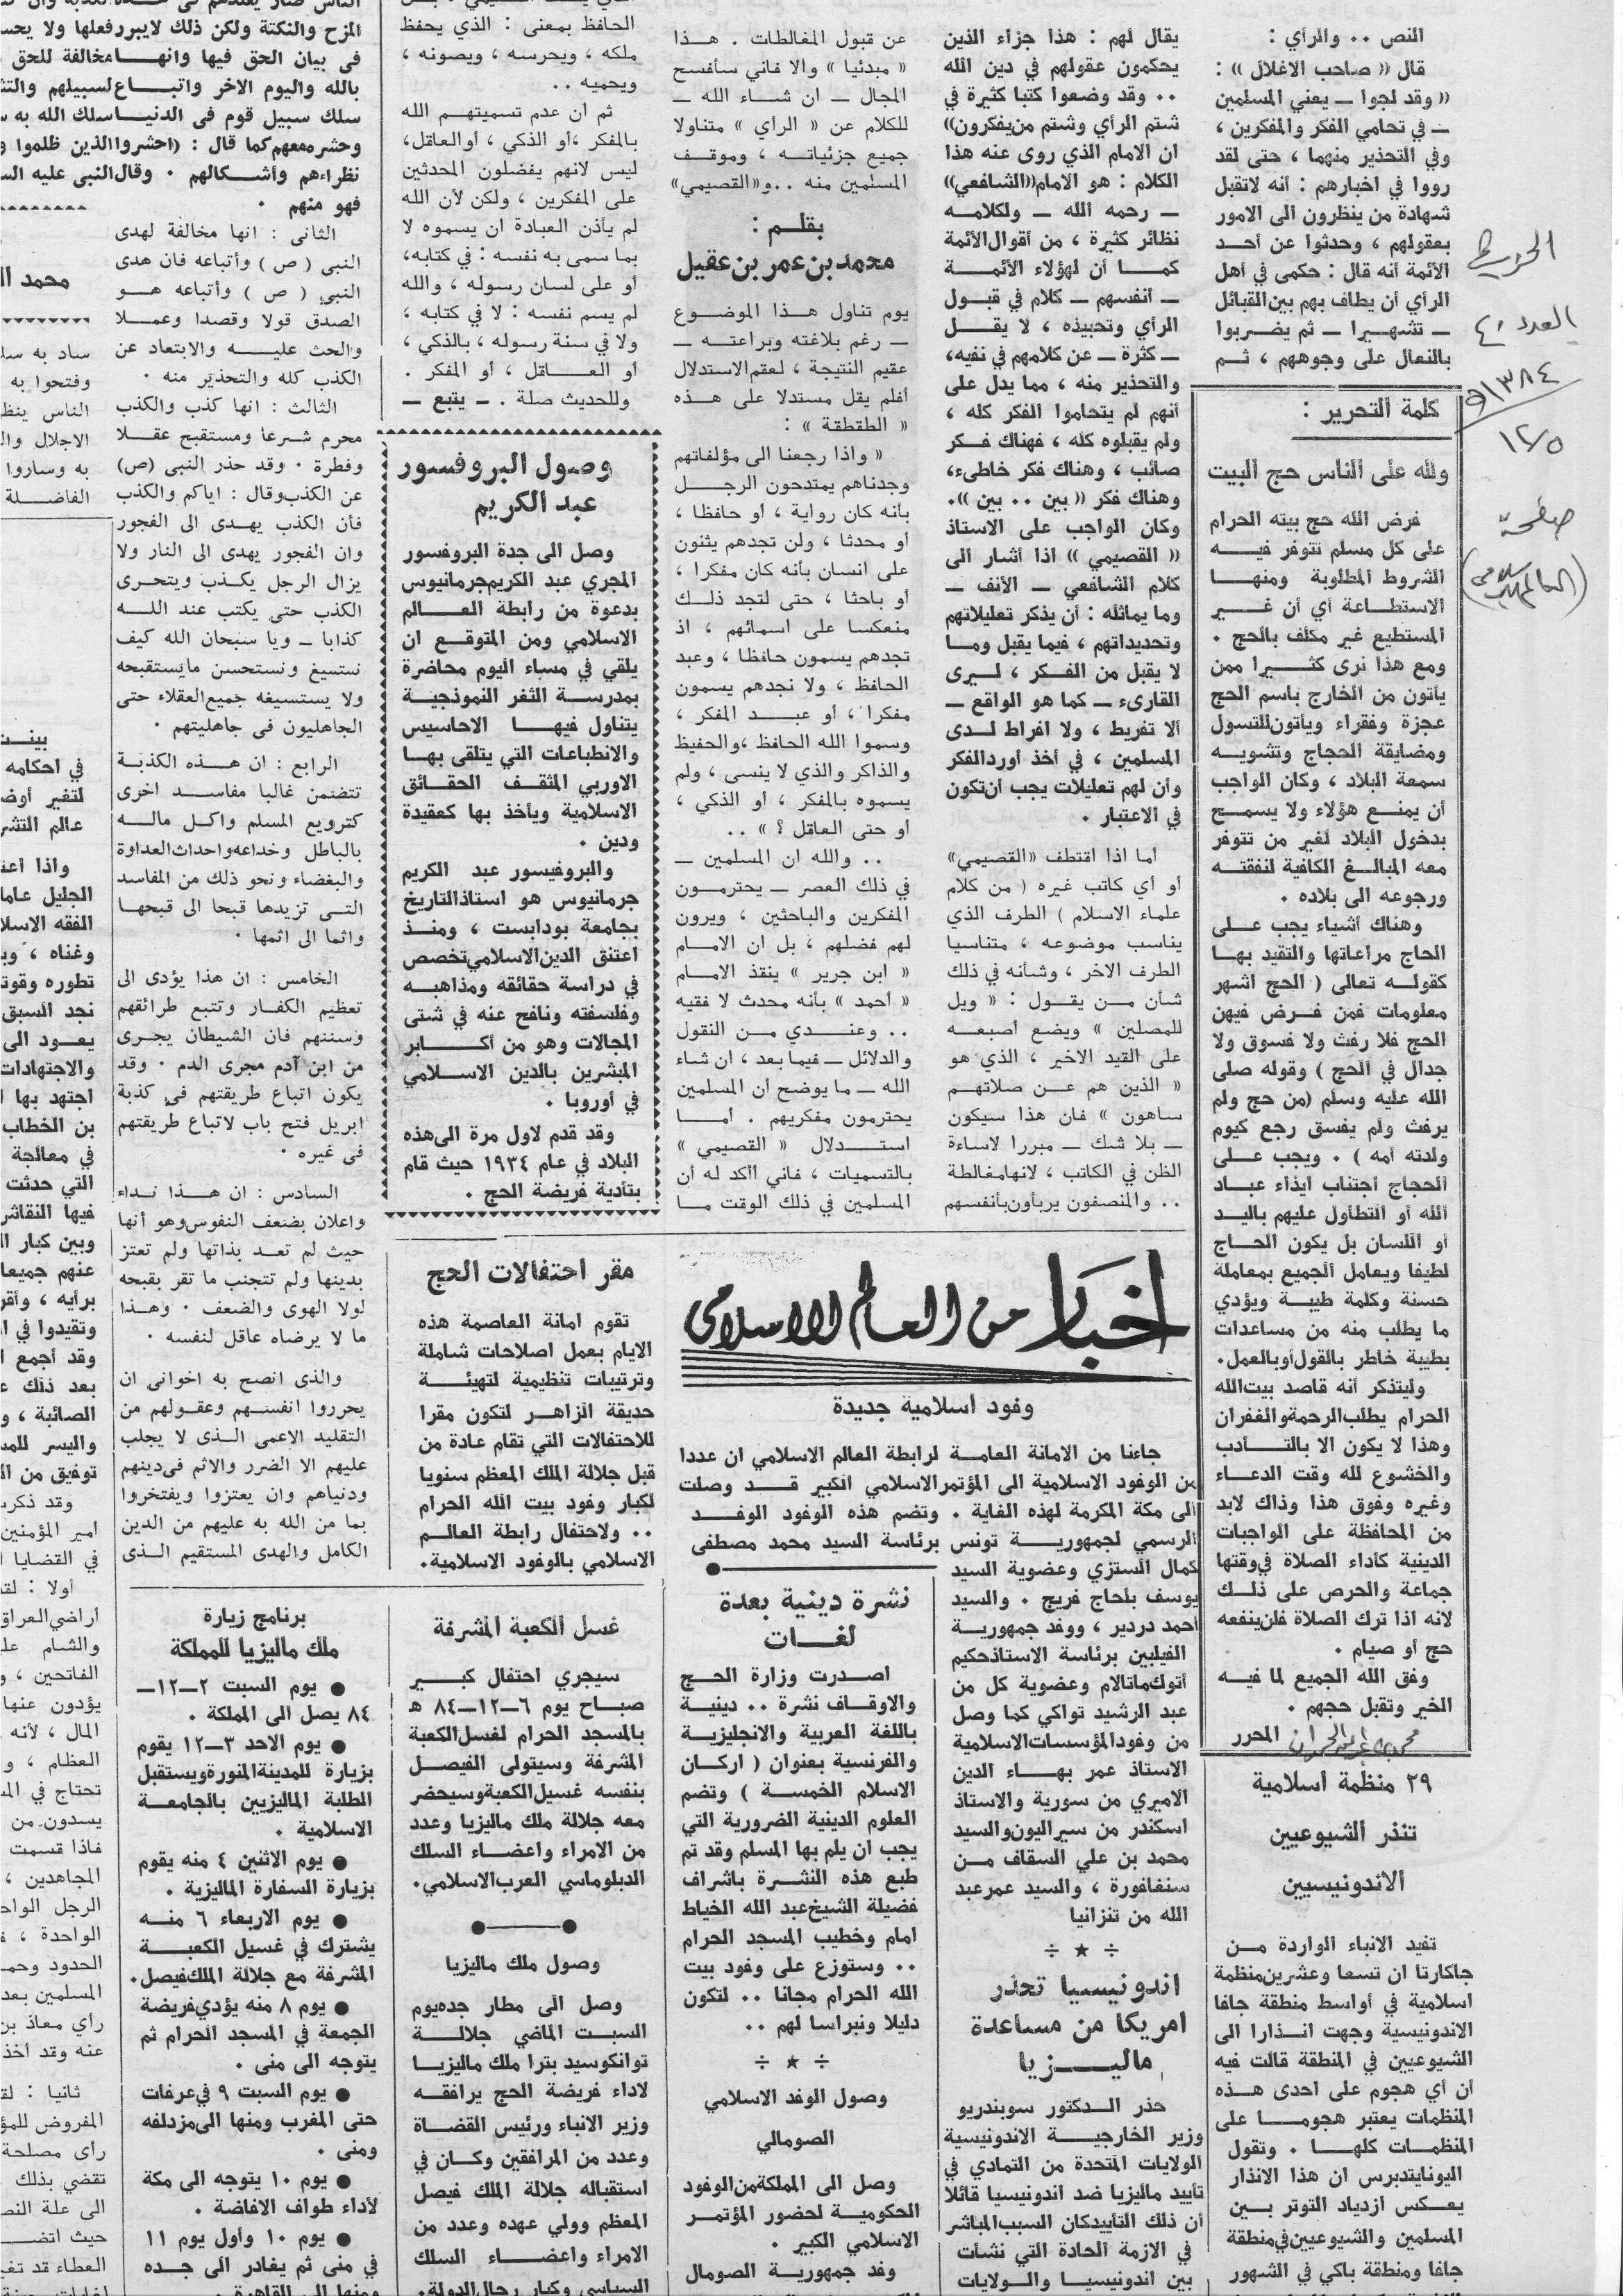 النص .. والرأي :
قال « صاحب الاغلال » :
« وقد لجوا ــ يعني المسلمين
ــ في تحامي الفكر والمفكرين ،
وفي التحذير منهما ، حتى لقد
رووا في اخبارهم : أنه لاتقبل
شهادة من ينظرون الى الامور
بعقولهم ، وحدثوا عن أحد
الأئمة أنه قال : حكمى في أهل
الرأي أن يطاف بهم بين القبائل
ــ تشهيرا ــ ثم يضربوا
بالنعال على وجوههم ، ثم
يقال لهم : هذا جزاء الذين
يحكمون عقولهم في دين الله
.. وقد وضعوا كتبا كثيرة في
شتم الرأي وشتم من يفكرون»
ان الامام الذي روى عنه هذا
الكلام : هو الامام «الشافعي»
ــ رحمه الله ــ ولكلامه
نظائر كثيرة ، من أقوال الأئمة
كما أن لهؤلاء الأئمة
ــ أنفسهم ــ كلام في قبول
الرأي وتحبيذه ، لا يقل
ــ كثرة ــ عن كلامهم في نفيه،
والتحذير منه ، مما يدل على
أنهم لم يتحاموا الفكر كله ،
ولم يقبلوه كله ، فهناك فكر
صائب ، وهناك فكر خاطىء،
وهناك فكر « بين .. بين ».
وكان الواجب على الاستاذ
« القصيمي » اذا أشار الى
كلام الشافعي ــ الأنف ــ
وما يماثله : أن يذكر تعليلاتهم
وتحديداتهم ، فيما يقبل وما
لا يقبل من الفكر ، ليرى
القارىء ــ كما هو الواقع ــ
ألا تفريط ، ولا افراط لدى
المسلمين ، في أخذ أورد الفكر
وأن لهم تعليلات يجب أن تكون
في الاعتبار .
اما اذا اقتطف «القصيمي»
أو أي كاتب غيره ( من كلام
علماء الاسلام ) الطرف الذي
يناسب موضوعه ، متناسيا
الطرف الاخر ، وشأنه في ذلك
شأن من يقول : « ويل
للمصلين » ويضع أصبعه
على القيد الاخير ، الذي هو
« الذين هم عن صلاتهم
ساهون » فان هذا سيكون
ــ بلا شك ــ مبررا لاساءة
الظن في الكاتب ، لانها مغالطة
.. والمنصفون يربأون بأنفسهم
عن قبول المغالطات . هذا
« مبدئيا » والا فاني سأفسح
المجال ــ ان شاء الله ــ
للكلام عن « الرأي » متناولا
جميع جزئياته ، وموقف
المسلمين منه .. و«القصيمي»
بقلم :
محمد بن عمر بن عقيل
يوم تناول هذا الموضوع
ــ رغم بلاغته وبراعته ــ
عقيم النتيجة ، لعقم الاستدلال
أفلم يقل مستدلا على هذه
« الطقطقة » :
« واذا رجعنا الى مؤلفاتهم
وجدناهم يمتدحون الرجل
بأنه كان رواية ، أو حافظا ،
أو محدثا ، ولن تجدهم يثنون
على انسان بأنه كان مفكرا ،
أو باحثا ، حتى لتجد ذلك
منعكسا على اسمائهم ، اذ
تجدهم يسمون حافظا ، وعبد
الحافظ ، ولا نجدهم يسمون
مفكرا ، أو عبد المفكر ،
وسموا الله الحافظ ،والحفيظ
والذاكر والذي لا ينسى ، ولم
يسموه بالمفكر ، أو الذكي ،
أو حتى العاقل ؟ » ..
.. والله ان المسلمين ــ
في ذلك العصر ــ يحترمون
المفكرين والباحثين ، ويرون
لهم فضلهم ، بل ان الامام
« ابن جرير » ينقذ الامام
« أحمد » بأنه محدث لا فقيه
.. وعندي من النقول
والدلائل ــ فيما بعد ، ان شاء
الله ــ ما يوضح أن المسلمين
يحترمون مفكريهم . أما
استدلال « القصيمي »
بالتسميات ، فاني أأكد له أن
المسلمين في ذلك الوقت ما
الحافظ بمعنى : الذي يحفظ
ملكه ، ويحرسه ، ويصونه ،
ويحميه ..
ثم ان عدم تسميتهم الله
بالمفكر ،أو الذكي ، أو العاقل،
ليس لانهم يفضلون المحدثين
على المفكرين ، ولكن لأن الله
لم يأذن العبادة ان يسموه لا
بما سمى به نفسه : في كتابه،
أو على لسان رسوله ، والله
لم يسم نفسه : لا في كتابه ،
ولا في سنة رسوله ، بالذكي ،
أو العاقل ، أو المفكر .
وللحديث صلة . ــ يتبع ــ
وصول البروفسور
عبد الكريم
وصل الى جدة البروفسور
المجري عبد الكريم جرمانيوس
بدعوة من رابطة العالم
الاسلامي ومن المتوقع ان
يلقي في مساء اليوم محاضرة
بمدرسة الثغر النموذجية
يتناول فيها الاحاسيس
والانطباعات التي يتلقى بها
الاوربي المثقف الحقائق
الاسلامية ويأخذ بها كعقيدة
ودين .
والبروفيسور عبد الكريم
جرمانيوس هو استاذ التاريخ
بجامعة بودابست ، ومنذ
اعتنق الدين الاسلامي تخصص
في دراسة حقائقه ومذاهبه
وفلسفته ونافح عنه في شتى
المجالات وهو من أكابر
المبشرين بالدين الاسلامي
في أوروبا .
وقد قدم لاول مرة الى هذه
البلاد في عام ١٩٣٤ حيث قام
بتأدية فريضة الحج .
المزح والنكتة ولكن ذلك لايبرر فعلها ولا
فى بيان الحق فيها وانها مخالفة للحق
بالله واليوم الاخر واتباع لسبيلهم
سلك سبيل قوم فى الدنيا سلك الله به
وحشره معهم كما قال : (احشروا الذين ظلموا
نظراءهم وأشكالهم . وقال النبى عليه
فهو منهم .
الثانى : انها مخالفة لهدى
النبى ( ص ) وأتباعه فان هدى
النبى ( ص ) وأتباعه هو
الصدق قولا وقصدا وعملا
والحث عليه والابتعاد عن
الكذب كله والتحذير منه .
الثالث : انها كذب والكذب
محرم شرعا ومستقبح عقلا
وفطرة . وقد حذر النبى (ص)
عن الكذب وقال : اياكم والكذب
فأن الكذب يهدى الى الفجور
وان الفجور يهدى الى النار ولا
يزال الرجل يكذب ويتحرى
الكذب حتى يكتب عند الله
كذابا ــ ويا سبحان الله كيف
نستسيغ ونستحسن مايستقبحه
ولا يستسيغه جميع العقلاء حتى
الجاهليون فى جاهليتهم .
الرابع : ان هذه الكذبة
تتضمن غالبا مفاسد اخرى
كترويع المسلم واكل ماله
بالباطل وخداعه واحداث العداوة
والبغضاء ونحو ذلك من المفاسد
التى تزيدها قبحا الى قبحها
واثما الى اثمها .
الخامس : ان هذا يؤدى الى
تعظيم الكفار وتتبع طرائقهم
وسننهم فان الشيطان يجرى
من ابن آدم مجرى الدم . وقد
يكون اتباع طريقتهم في كذبة
ابريل فتح باب لاتباع طريقتهم
فى غيره .
السادس : ان هذا نداء
واعلان بضعف النفوس وهو أنها
حيث لم تعد بذاتها ولم تعتز
بدينها ولم تتجنب ما تقر بقبحه
لولا الهوى والضعف . وهذا
ما لا يرضاه عاقل لنفسه .
والذى انصح به اخوانى ان
يحرروا انفسهم وعقولهم من
التقليد الاعمى الذى لا يجلب
عليهم الا الضرر والاثم فى دينهم
ودنياهم وان يعتزوا ويفتخروا
بما من الله به عليهم من الدين
الكامل والهدى المستقيم الذى
العدد ٤٠
١٣٨٤هـ
١٢/٥
صفحة
(العالم الاسلامى)
كلمة التحرير :
ولله على الناس حج البيت
فرض الله حج بيته الحرام
على كل مسلم تتوفر فيه
الشروط المطلوبة ومنها
الاستطاعة أي أن غير
المستطيع غير مكلف بالحج .
ومع هذا نرى كثيرا ممن
يأتون من الخارج باسم الحج
عجزة وفقراء ويأتون للتسول
ومضايقة الحجاج وتشويه
سمعة البلاد ، وكان الواجب
أن يمنع هؤلاء ولا يسمح
بدخول البلاد لغير من تتوفر
معه المبالغ الكافية لنفقته
ورجوعه الى بلاده .
وهناك أشياء يجب على
الحاج مراعاتها والتقيد بها
كقوله تعالى ( الحج اشهر
معلومات فمن فرض فيهن
الحج فلا رفث ولا فسوق ولا
جدال في الحج ) وقوله صلى
الله عليه وسلم (من حج ولم
يرفث ولم يفسق رجع كيوم
ولدته أمه ) . ويجب على
الحجاج اجتناب ايذاء عباد
الله أو التطاول عليهم باليد
أو اللسان بل يكون الحاج
لطيفا ويعامل الجميع بمعاملة
حسنة وكلمة طيبة ويؤدي
ما يطلب منه من مساعدات
بطيبة خاطر بالقول أو بالعمل.
وليتذكر أنه قاصد بيت الله
الحرام يطلب الرحمة والغفران
وهذا لا يكون الا بالتأدب
والخشوع لله وقت الدعاء
وغيره وفوق هذا وذاك لابد
من المحافظة على الواجبات
الدينية كأداء الصلاة في وقتها
جماعة والحرص على ذلك
لانه اذا ترك الصلاة فلن ينفعه
حج أو صيام .
وفق الله الجميع لما فيه
الخير وتقبل حجهم .
المحرر
٢٩ منظمة اسلامية
تنذر الشيوعيين
الاندونيسيين
تفيد الانباء الواردة من
جاكارتا ان تسعا وعشرين منظمة
اسلامية في أواسط منطقة جافا
الاندونيسية وجهت انذارا الى
الشيوعيين في المنطقة قالت فيه
أن أي هجوم على احدى هذه
المنظمات يعتبر هجوما على
المنظمات كلها . وتقول
اليونايتد برس ان هذا الانذار
يعكس ازدياد التوتر بين
المسلمين والشيوعيين في منطقة
جافا ومنطقة باكي في الشهور
اخبار من العالم الاسلامى
وفود اسلامية جديدة
جاءنا من الامانة العامة لرابطة العالم الاسلامي ان عددا
من الوفود الاسلامية الى المؤتمر الاسلامي الكبير قد وصلت
الى مكة المكرمة لهذه الغاية . وتضم هذه الوفود الوفد
الرسمي لجمهورية تونس برئاسة السيد محمد مصطفى
كمال الستزي وعضوية السيد
يوسف بلحاج فريج . والسيد
أحمد دردير ، ووفد جمهورية
الفيلبين برئاسة الاستاذ حكيم
أتوك ماتالام وعضوية كل من
عبد الرشيد تواكي كما وصل
من وفود المؤسسات الاسلامية
الاستاذ عمر بهاء الدين
الاميري من سورية والاستاذ
اسكندر من سيراليون والسيد
محمد بن علي السقاف من
سنغافورة ، والسيد عمر عبد
الله من تنزانيا
÷ ★ ÷
اندونيسيا تحذر
امريكا من مساعدة
ماليزيا
حذر الدكتور سوبندريو
وزير الخارجية الاندونيسية
الولايات المتحدة من التمادي في
تأييد ماليزيا ضد اندونيسيا قائلا
أن ذلك التأييد كان السبب المباشر
في الازمة الحادة التي نشأت
بين اندونيسيا والولايات
نشرة دينية بعدة
لغات
اصدرت وزارة الحج
والاوقاف نشرة .. دينية
باللغة العربية والانجليزية
والفرنسية بعنوان ( اركان
الاسلام الخمسة ) وتضم
العلوم الدينية الضرورية التي
يجب ان يلم بها المسلم وقد تم
طبع هذه النشرة باشراف
فضيلة الشيخ عبد الله الخياط
امام وخطيب المسجد الحرام
.. وستوزع على وفود بيت
الله الحرام مجانا .. لتكون
دليلا ونبراسا لهم ..
÷ ★ ÷
وصول الوفد الاسلامي
الصومالي
وصل الى المملكة من الوفود
الحكومية لحضور المؤتمر
الاسلامي الكبير .
وفد جمهورية الصومال
مقر احتفالات الحج
تقوم امانة العاصمة هذه
الايام بعمل اصلاحات شاملة
وترتيبات تنظيمية لتهيئة
حديقة الزاهر لتكون مقرا
للاحتفالات التي تقام عادة من
قبل جلالة الملك المعظم سنويا
لكبار وفود بيت الله الحرام
.. ولاحتفال رابطة العالم
الاسلامي بالوفود الاسلامية.
غسل الكعبة المشرفة
سيجري احتفال كبير
صباح يوم ٦ــ١٢ــ٨٤ هـ
بالمسجد الحرام لغسل الكعبة
المشرفة وسيتولى الفيصل
بنفسه غسيل الكعبة وسيحضر
معه جلالة ملك ماليزيا وعدد
من الامراء واعضاء السلك
الدبلوماسي العرب الاسلامي.
وصول ملك ماليزيا
وصل الى مطار جده يوم
السبت الماضي جلالة
توانكو سيد بترا ملك ماليزيا
لاداء فريضة الحج يرافقه
وزير الانباء ورئيس القضاة
وعدد من المرافقين وكان في
استقباله جلالة الملك فيصل
المعظم وولي عهده وعدد من
الامراء واعضاء السلك
السياسي وكبار رجال الدولة.
برنامج زيارة
ملك ماليزيا للمملكة
● يوم السبت ٢ــ١٢ــ
٨٤ يصل الى المملكة .
● يوم الاحد ٣ــ١٢ يقوم
بزيارة للمدينة المنورة ويستقبل
الطلبة الماليزيين بالجامعة
الاسلامية .
● يوم الاثنين ٤ منه يقوم
بزيارة السفارة الماليزية .
● يوم الاربعاء ٦ منه
يشترك في غسيل الكعبة
المشرفة مع جلالة الملك فيصل.
● يوم ٨ منه يؤدي فريضة
الجمعة في المسجد الحرام ثم
يتوجه الى منى .
● يوم السبت ٩ في عرفات
حتى المغرب ومنها الى مزدلفه
ومنى .
● يوم ١٠ يتوجه الى مكة
لأداء طواف الافاضة .
● يوم ١٠ وأول يوم ١١
في منى ثم يغادر الى جده
ومنها الى القاهرة .
محمد
ساد به
وفتحوا به
الناس
الاجلال
به وساروا
الفاضلة
في احكامه
لتغير
عالم
واذا
الجليل
الفقه
وغناه ،
تطوره
نجد السبق
يعود الى
والاجتهادات
اجتهد بها
بن الخطاب
في معالجة
التي حدثت
فيها
وبين كبار
عنهم جميعا
برأيه ،
وتقيدوا في
وقد أجمع
بعد ذلك
الصائبة ،
واليسر
توفيق من
وقد
أمير المؤمنين
في القضايا
أولا :
أراضي العراق
والشام
الفاتحين ،
يؤدون عنها
المال ، لأنه
العظام ،
تحتاج في
يسدون من
فاذا قسمت
المجاهدين ،
الرجل
الواحدة ،
الحدود
المسلمين
رأي معاذ
عنه وقد أخذ
ثانيا :
المفروض
رأى مصلحة
تقضي بذلك
الى علة
حيث
العطاء قد